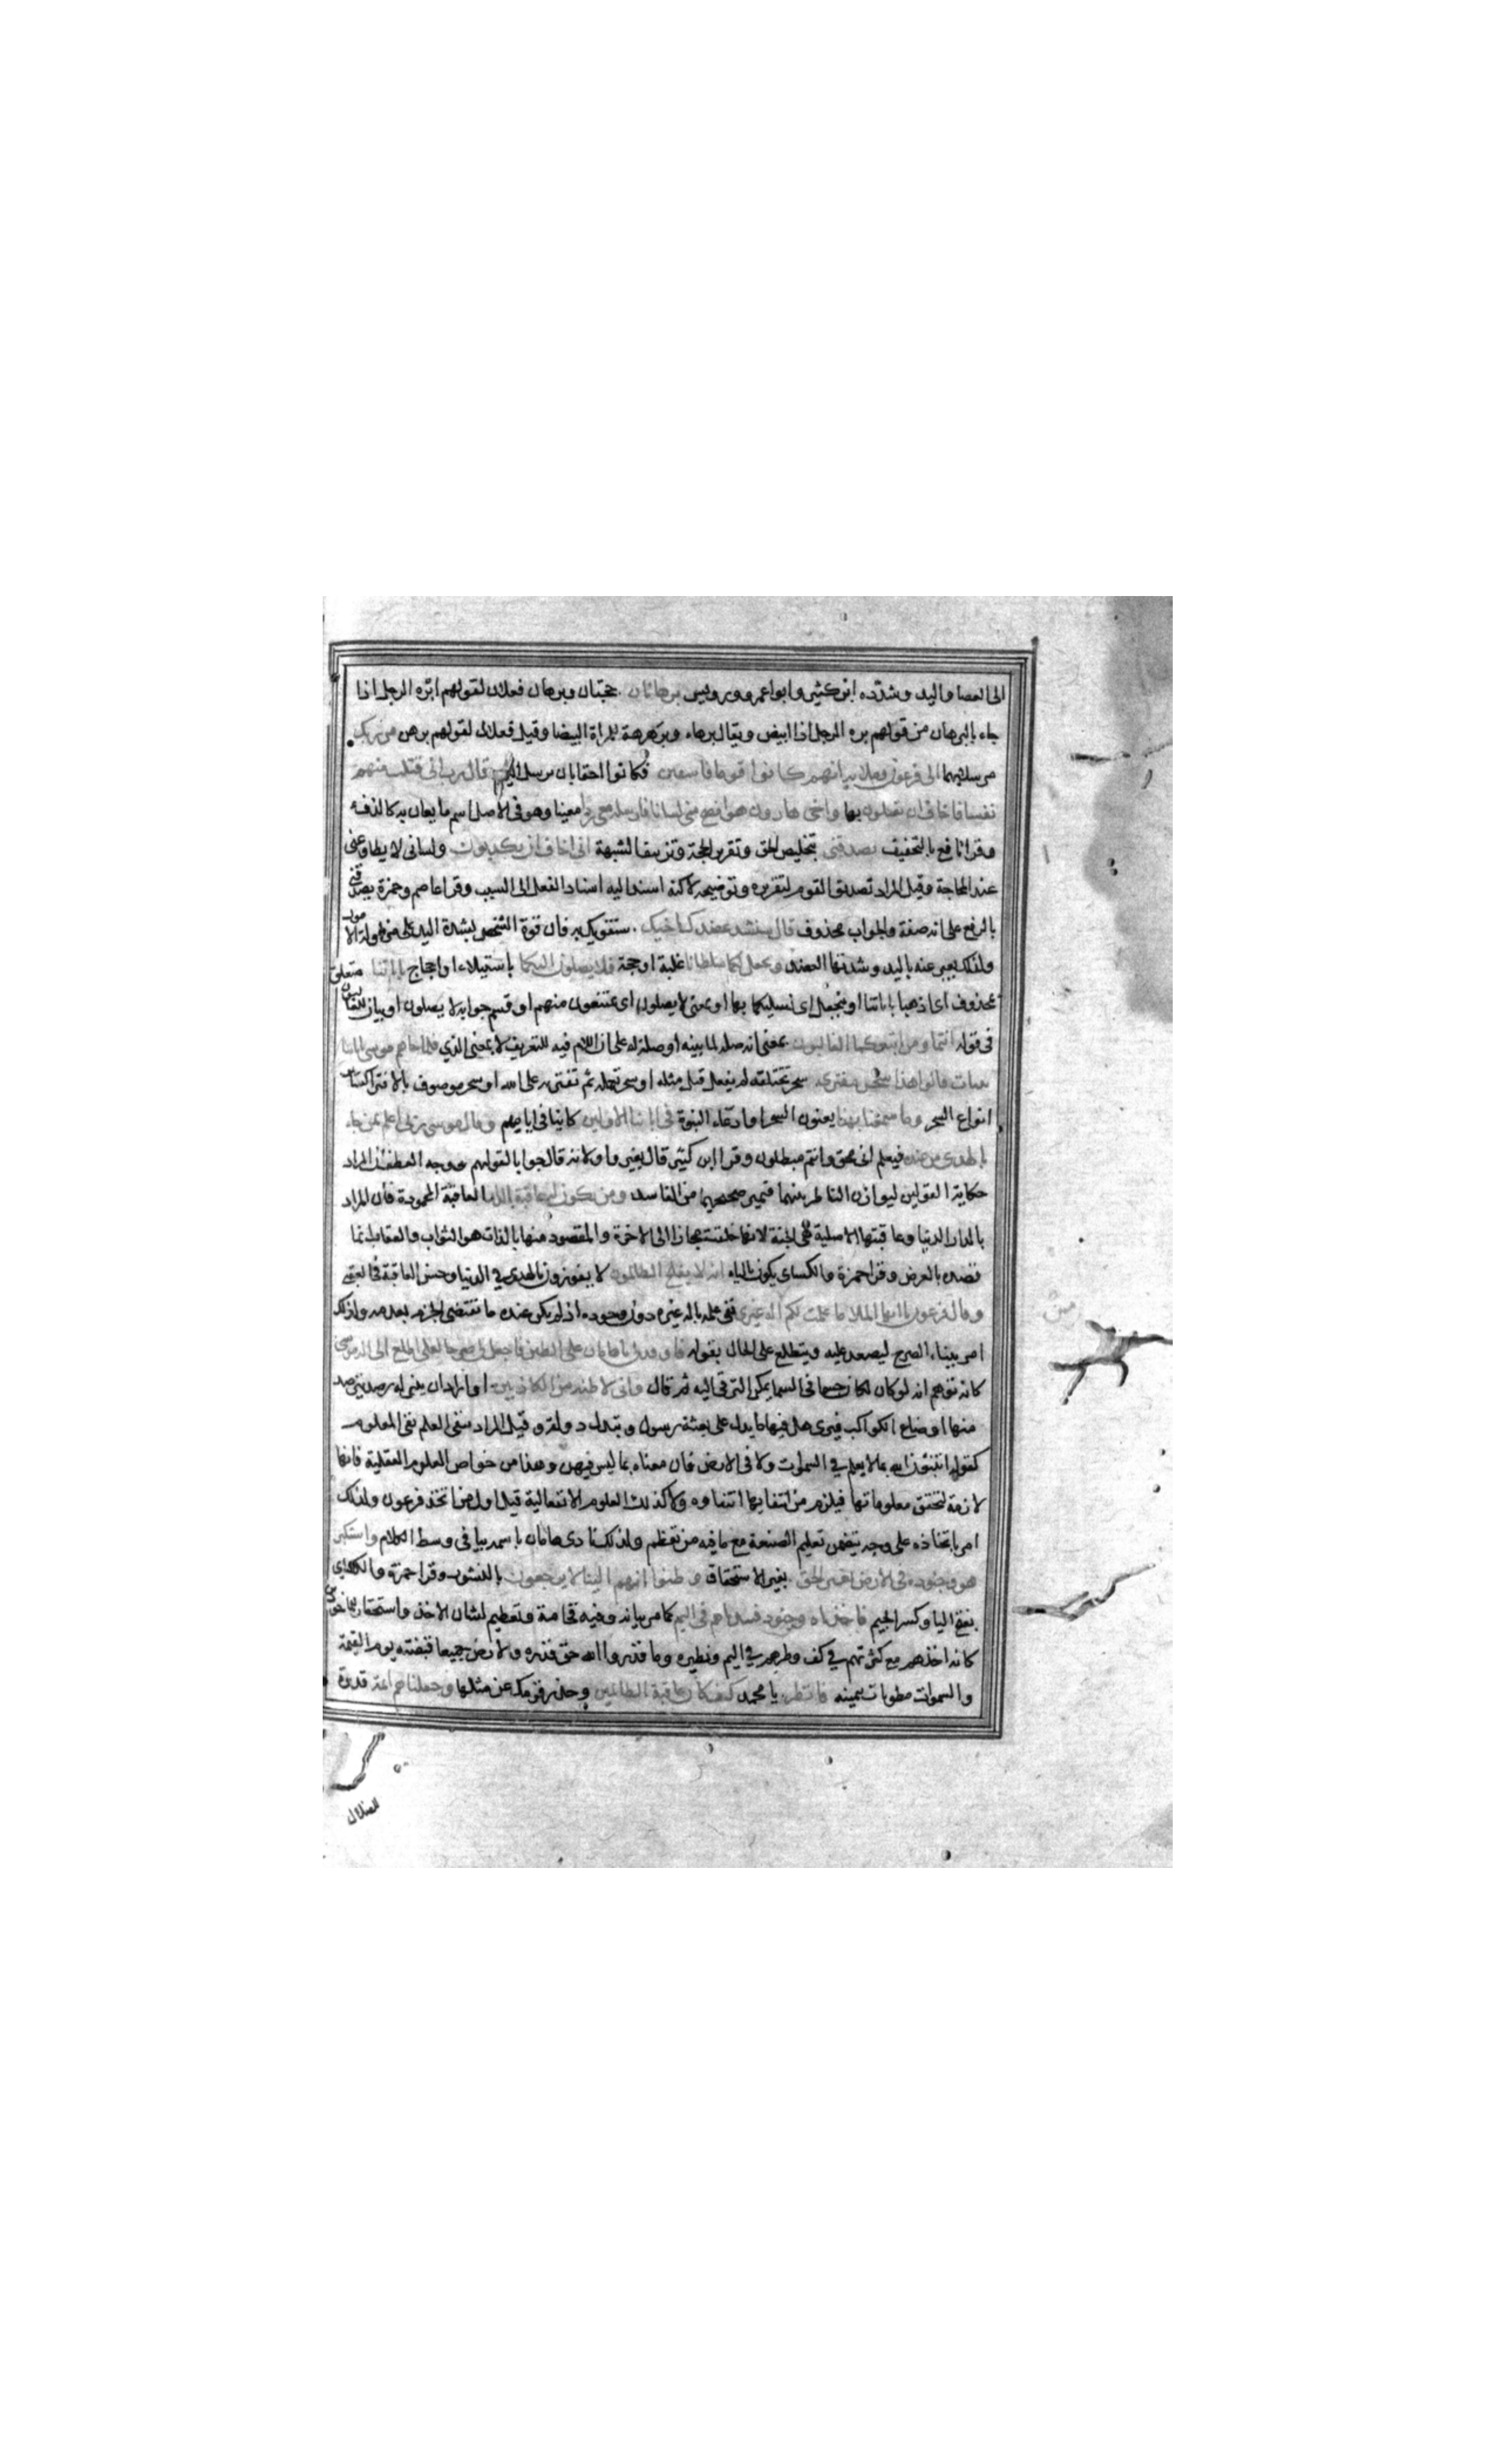 الى العصا واليد وشدّده ابن كثير وابوا عمرو ورويس برهانان حجتان وبرهان فعلان لقولهم ابره الرجل اذا
جاء بالبرهان من قولهم بره الرجل اذا ابيض ويقال برهاء وبرهرهة للمراة البيضا وقيل فعلال لقولهم برهن من ربك
مرسلا بهما الى فرعون وملايه انهم كانوا قوما فاسقين فكانوا احقا بان يرسل اليهم قال رب انى قتلت منهم
نفسا فاخاف ان يقتلون بها واخى هارون هو افصح منى لسانا فارسله معى ردا معينا وهو فى الاصل اسم ما يعان به كالدفء
وقرا نافع بالتخفيف يصدقنى بتخليص الحق وتقرير الحجة وتزييف الشبهة انى اخاف ان يكذبون ولسانى لا يطاوعنى
عند المحاجة وقيل المراد تصديق القوم لتقريره وتوضيحه لاكنه اسند اليه اسناد الفعل الى السبب وقرا عاصم وحمزة يصدقنى
بالرفع على انه صفة والجواب محذوف قال سنشد عضدك باخيك سنقويك به فان قوة الشخص بشدة اليد على مزاولة الامور
ولذلك يعبر عنه باليد وشدتها العضد ونجعل لكما سلطانا غلبة او حجة فلا يصلون اليكما باستيلاء او احجاج باياتنا متعلق
بمحذوف اى اذهبا باياتنا او بنجعل اى نسليكما بها او بمعنى لا يصلون اى تمتنعون منهم او قسم جوابه لا يصلون او بيان للغالبون
فى قوله انتما ومن اتبعكما الغالبون بمعنى انه صله لما بينه او صلة له على ان اللام فيه للتعريف لا بمعنى الذي فلما جاهم موسى باياتنا
بينات قالوا ما هذا الا سحر مفترى سحر تختلقه لم يفعل قبل مثله او سحر تعمله ثم تفتريه على الله او سحر موصوف بالافترا كساير
انواع السحر وما سمعنا بهذا يعنون السحر او ادعاء النبوة فى ابائنا الاولين كاينا فى ايامهم وقال موسى ربى اعلم بمن جاء
بالهدى من عنده فيعلم انى محق وانتم مبطلون وقرا ابن كثير قال بغير واو لانه قال جوابا لقولهم ووجه العطف ان المراد
حكاية القولين ليوازن الناظر بينهما فيميز صحيحهما من الفاسد ومن يكون له عاقبة الدار العاقبة المحمودة فان المراد
بالدار الدنيا وعاقبتها الاصلية هى الجنة لانها خلقت مجازا الى الاخرة والمقصود منها بالذات هو الثواب والعقاب انما
قصد بالعرض وقرا حمزة والكساى يكون بالياء انه لا يفلح الظالمون لا يفوزون بالهدى في الدنيا وحسن العاقبة فى العقبى
وقال فرعون يا ايها الملا ما علمت لكم من اله غيرى نفى علمه باله غيره دون وجوده اذ لم يكن عنده ما يقتضى الجزم بعدمه ولذلك
امر ببناء الصرح ليصعد عليه ويتطلع على الحال بقوله فاوقد لى يا هامان على الطين فاجعل لى صرحا لعلى اطلع الى اله موسى
كانه توهم انه لو كان لكان جسما فى السما يمكن الترقى اليه ثم قال وانى لاظنه من الكاذبين او اراد ان يبنى له رصدا يترصد
منها اوضاع الكواكب فيرى هل فيها ما يدل على بعثة رسول وتبدل دولة وقيل المراد بنفى العلم نفى المعلوم
كقوله اتنبئون الله بما لا يعلم في السموات ولا فى الارض فان معناه بما ليس فيهن وهذا من خواص العلوم العقلية فانها
لازمة لتحقق معلوماتها فيلزم من انتفايها انتفاوه ولا كذلك العلوم الانفعالية قيل اول من اتخذ فرعون ولذلك
امر باتخاذه على وجه يتضمن تعليم الصنعة مع ما فيه من تعظم ولذلك نادى هامان باسمه بيا فى وسط الكلام واستكبر
هو وجنوده فى الارض بغير الحق بغير الاستحقاق وظنوا انهم الينا لا يرجعون بالنشور وقرا حمزة والكساى
بفتح اليا وكسر الجيم فاخذناه وجنوده فنبذناهم فى اليم كما مر بيانه وفيه فخامة وتعظيم لشان الاخذ واستحقار للماخوذين
كانه اخذهم مع كثرتهم في كف وطرحهم في اليم ونظيره وما قدروا الله حق قدره والارض جميعا قبضته يوم القيمة
والسموات مطويات بيمينه فانظر يا محمد كيف كان عاقبة الظالمين وحذر قومك عن مثلها وجعلناهم ائمة قدوة
للضلال